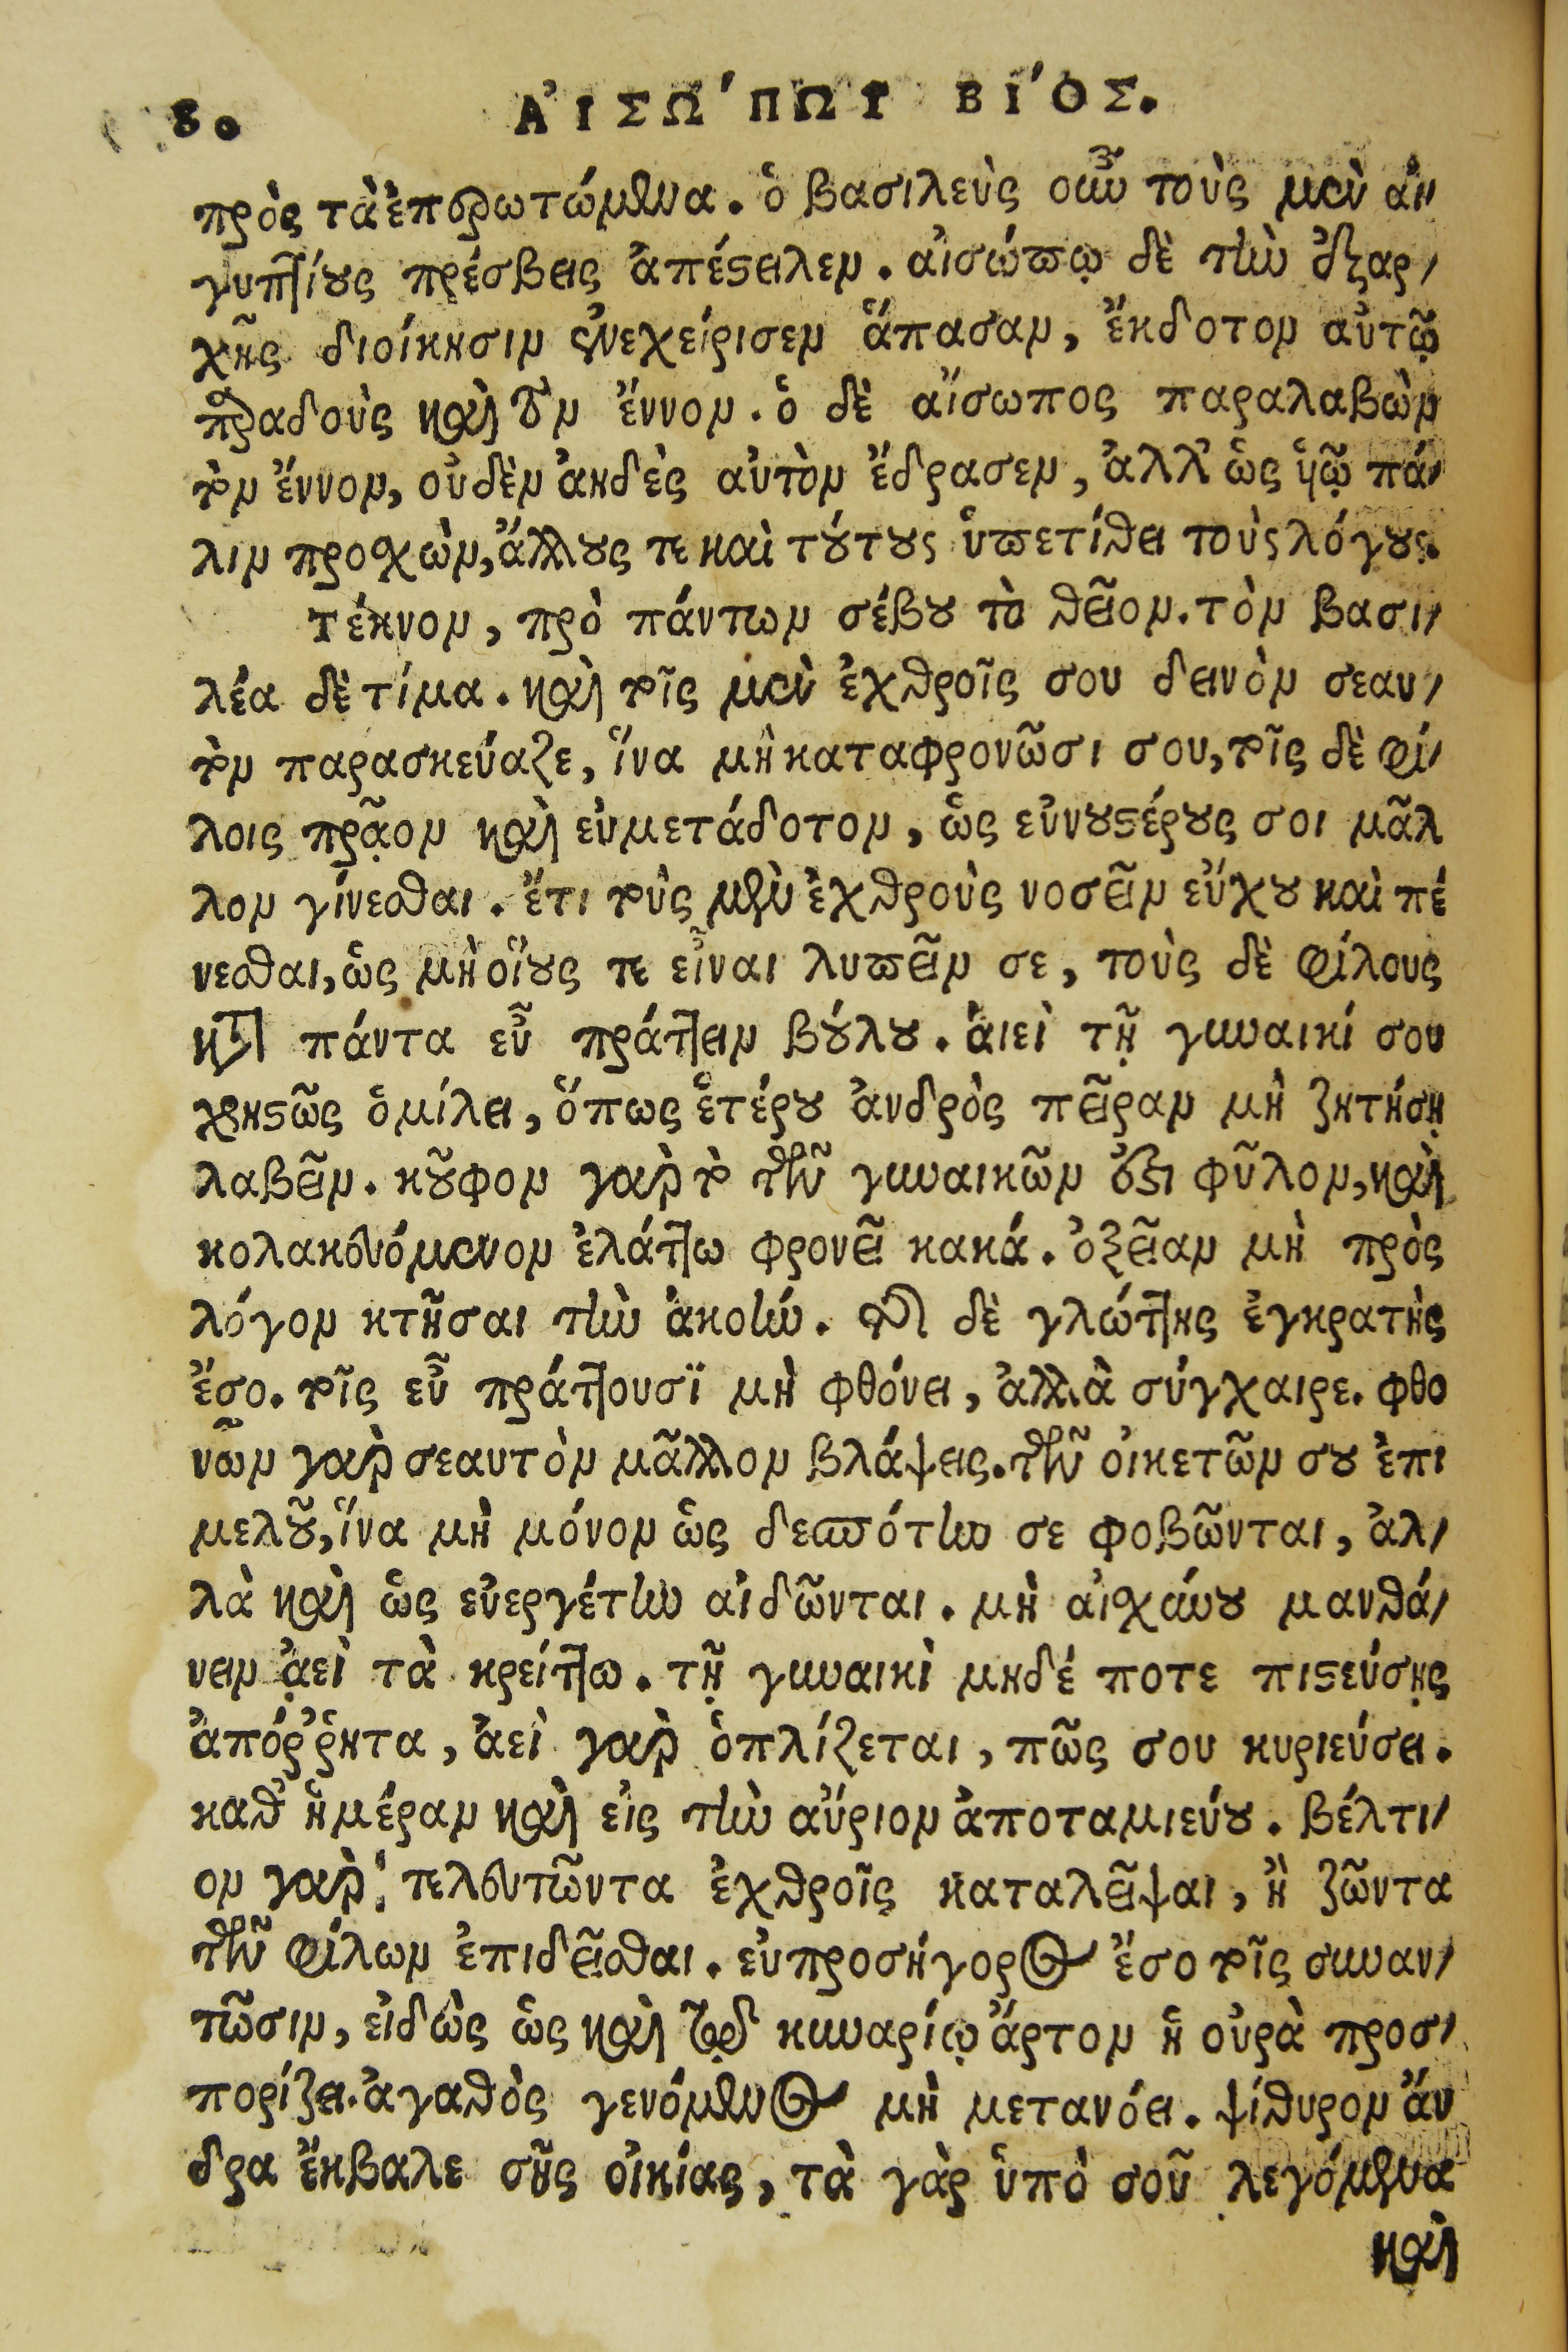 80 ΑἸΣΩ´ΠΩΥ ΒΙ´ΟΣ.
πρὸς τὰ ἐπερωτώμενα. ὁ βασιλεὺς οὖν τοὺς μὲν αἰ/
γυπτίους πρέσβεις ἀπέστειλεν. αἰσώπῳ δὲ τὴν ἐξαρ/
χῆς διοίκησιν ἐνεχείρισεν ἅπασαν, ἔκδοτον αὐτῷ
παραδοὺς καὶ τὸν ἔννον. ὁ δὲ αἴσωπος παραλαβὼν
τὸν ἔννον, οὐδὲν ἀηδὲς αὐτὸν ἔδρασεν, ἀλλ' ὡς ὑῷ πά/
λιν προσχὼν, ἄλλους τε καὶ τούτους ὑπετίθει τοὺς λόγους.
Τέκνον, πρὸ πάντων σέβου τὸ θεῖον. τὸν βασι/
λέα δὲ τίμα. καὶ τοῖς μὲν ἐχθροῖς σου δεινὸν σεαυ/
τὸν παρασκεύαζε, ἵνα μὴ καταφρονῶσι σου, τοῖς δὲ φί/
λοις πρᾷον καὶ εὐμετάδοτον, ὡς εὐνουστέρους σοι μᾶλ
λον γίνεσθαι. ἔτι τοὺς μὲν ἐχθροὺς νοσεῖν εὔχου καὶ πέ
νεσθαι, ὡς μὴ οἵους τε εἶναι λυπεῖν σε, τοὺς δὲ φίλους
κατὰ πάντα εὖ πράττειν βούλου. ἀιεὶ τῇ γυναικί σου
χρηστῶς ὁμίλει, ὅπως ἑτέρου ἀνδρὸς πεῖραν μὴ ζητήσῃ
λαβεῖν. κοῦφον γὰρ τὸ τῶν γυναικῶν ἐστι φῦλον, καὶ
κολακευόμενον ἐλάττω φρονεῖ κακά. ὀξεῖαν μὴ πρὸς
λόγον κτῆσαι τὴν ἀκοήν. τῆς δὲ γλώττης ἐγκρατὴς
ἔσο. τοῖς εὖ πράττουσϊ μὴ φθόνει, ἀλλὰ σύγχαιρε. φθο
νῶν γὰρ σεαυτὸν μᾶλλον βλάψεις. τῶν οἰκετῶν σου ἐπι
μελοῦ, ἵνα μὴ μόνον ὡς δεσπότην σε φοβῶνται, ἀλ/
λὰ καὶ ὡς εὐεργέτην αἰδῶνται. μὴ αἰσχύνου μανθά/
νειν ἀεὶ τὰ κρείττω. τῇ γυναικὶ μηδέ ποτε πιστεύσῃς
ἀπόῤῥητα, ἀεὶ γὰρ ὁπλίζεται, πῶς σου κυριεύσει.
καθ' ἡμέραν καὶ εἰς τὴν αὔριον ἀποταμιεύου. βέλτι/
ον γὰρ τελευτῶντα ἐχθροῖς καταλεῖψαι, ἢ ζῶντα
τῶν φίλων ἐπιδεῖσθαι. εὐπροσήγορος ἔσο τοῖς συναν/
τῶσιν, εἰδὼς ὡς καὶ τῷ κυναρίῳ ἄρτον ἡ οὐρὰ προσ/
πορίζει. ἀγαθὸς γενόμενος μὴ μετανόει. ψίθυρον ἄν
δρα ἔκβαλε σῆς οἰκίας, τὰ γὰρ ὑπὸ σοῦ λεγόμενα
καὶ